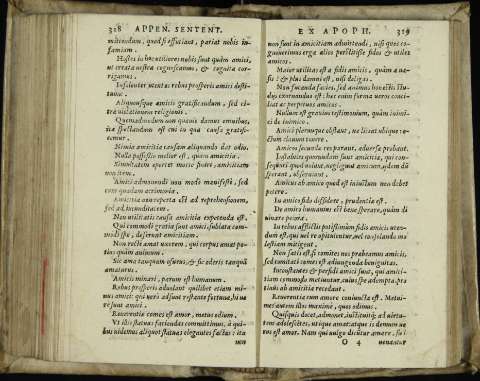 318 APPEN. SENTENT.
mittendum, quod si efficiant, pariat nobis in-
famiam.
Hostes in sunt quàm amici,
ut errata nostra cognoscamus, & cognita cor-
rigamus.
Insolenter rebus prosperis amici
Aliquousque amicis gratificandum, sed ci-
tra violationem religionis.
Quemadmodum non quavis damus
ita spectandum est cui in qua causa gratifi-
cemur.
Nimia amicitia causam aliquando dat odio.
Nulla possessio melior est, quàm amicitia.
Simultatem aperte morso potes, amicitiam
non item.
Amici admonendi non modò manifestè, sed
cum quadam acrimonia.
Amicitia ad reprehensionem,
sed ad iucunditatem.
Non utilitatis causa amicitia expetenda est.
Qui commodi gratia sunt amici, sublata com-
moditate, deserunt amicitiam.
Non rectè amat uxorem, qui corpus amat po-
tius quàm animum.
Sic ama tanquam osurus, & sic oderis tanquã
amaturus.
Amicis minari, parum est humanum.
Rebus prosperis adulant quilibet etiam mi-
nus amici: qui verò adsunt restante fortuna, hi ue
rè sunt amici.
Reverentia comes est amor, metus odium.
Ut ijs statuas faciendas committimus, à qui-
bus videmus aliquot statuas elegantes factas: ita
non
EX APOPH. 319
non sunt in amicitiam admittendi, nisi quos co-
gnoverimus erga alios perstitisse fidos & utiles
amicos.
Maior utilitas est a fidis amicis, quàm a
& plus damni est, nisi deligas.
Non fucanda facies, sed animus honestis stu-
dijs exornandus est: haec enim forma veros conci-
liat ac perpetuos amicos.
Nullum est gravius testimonium, quàm inimi-
ci de inimico.
Amici plerumque obstant, ne liceat ubique re-
ctum clavum tenere.
Amicos secunda res parant, adversa probant.
Instabiles quorundam sunt amicitiae, qui con-
sequuti quod volunt, negligunt amicum, quem dũ
sperant, observant.
Amicus ab amico quod est iniustum non debet
petere.
In amicos fidos diffidere, prudentia est.
De amicis humanis est bene sperare, quàm di
vinare peiora.
In rebus afflictis potissimùm fidis amicis uten-
dum est, qui vel re opitulentur, vel consolando mo-
lestiam mitigent.
Non satis est si comites nos probeamus amicis,
sed comitati comes est adiungenda benignitas.
Inconstantes & perfidi amici sunt, qui amici-
tiam commodo metiuntur, cuius spe adempta, pro-
tinus ab amicitia recedunt.
Reverentia cum amore coniuncta est. Metui-
mus autem illos maximè, quos odimus.
Quisquis docet, admonet, instituitq; ad virtu-
tem adolescentes, utique amat: atque is demum ve
rus est amor. Nam qui vulgo dicitur amare, sui
O 4 venatur